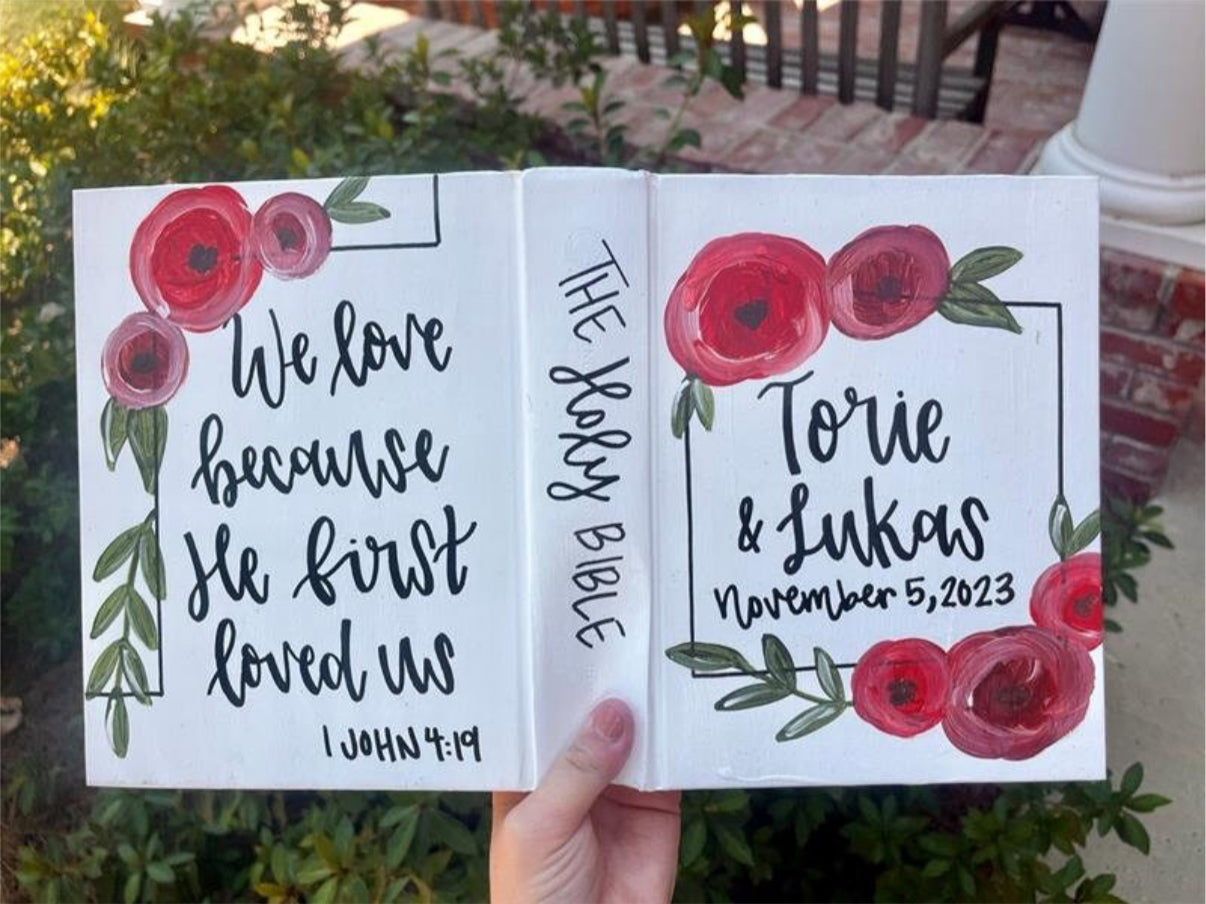 We love
because
He first
loved us
1 JOHN 4:19
THE Holy BIBLE
Torie
& Lukas
November 5, 2023